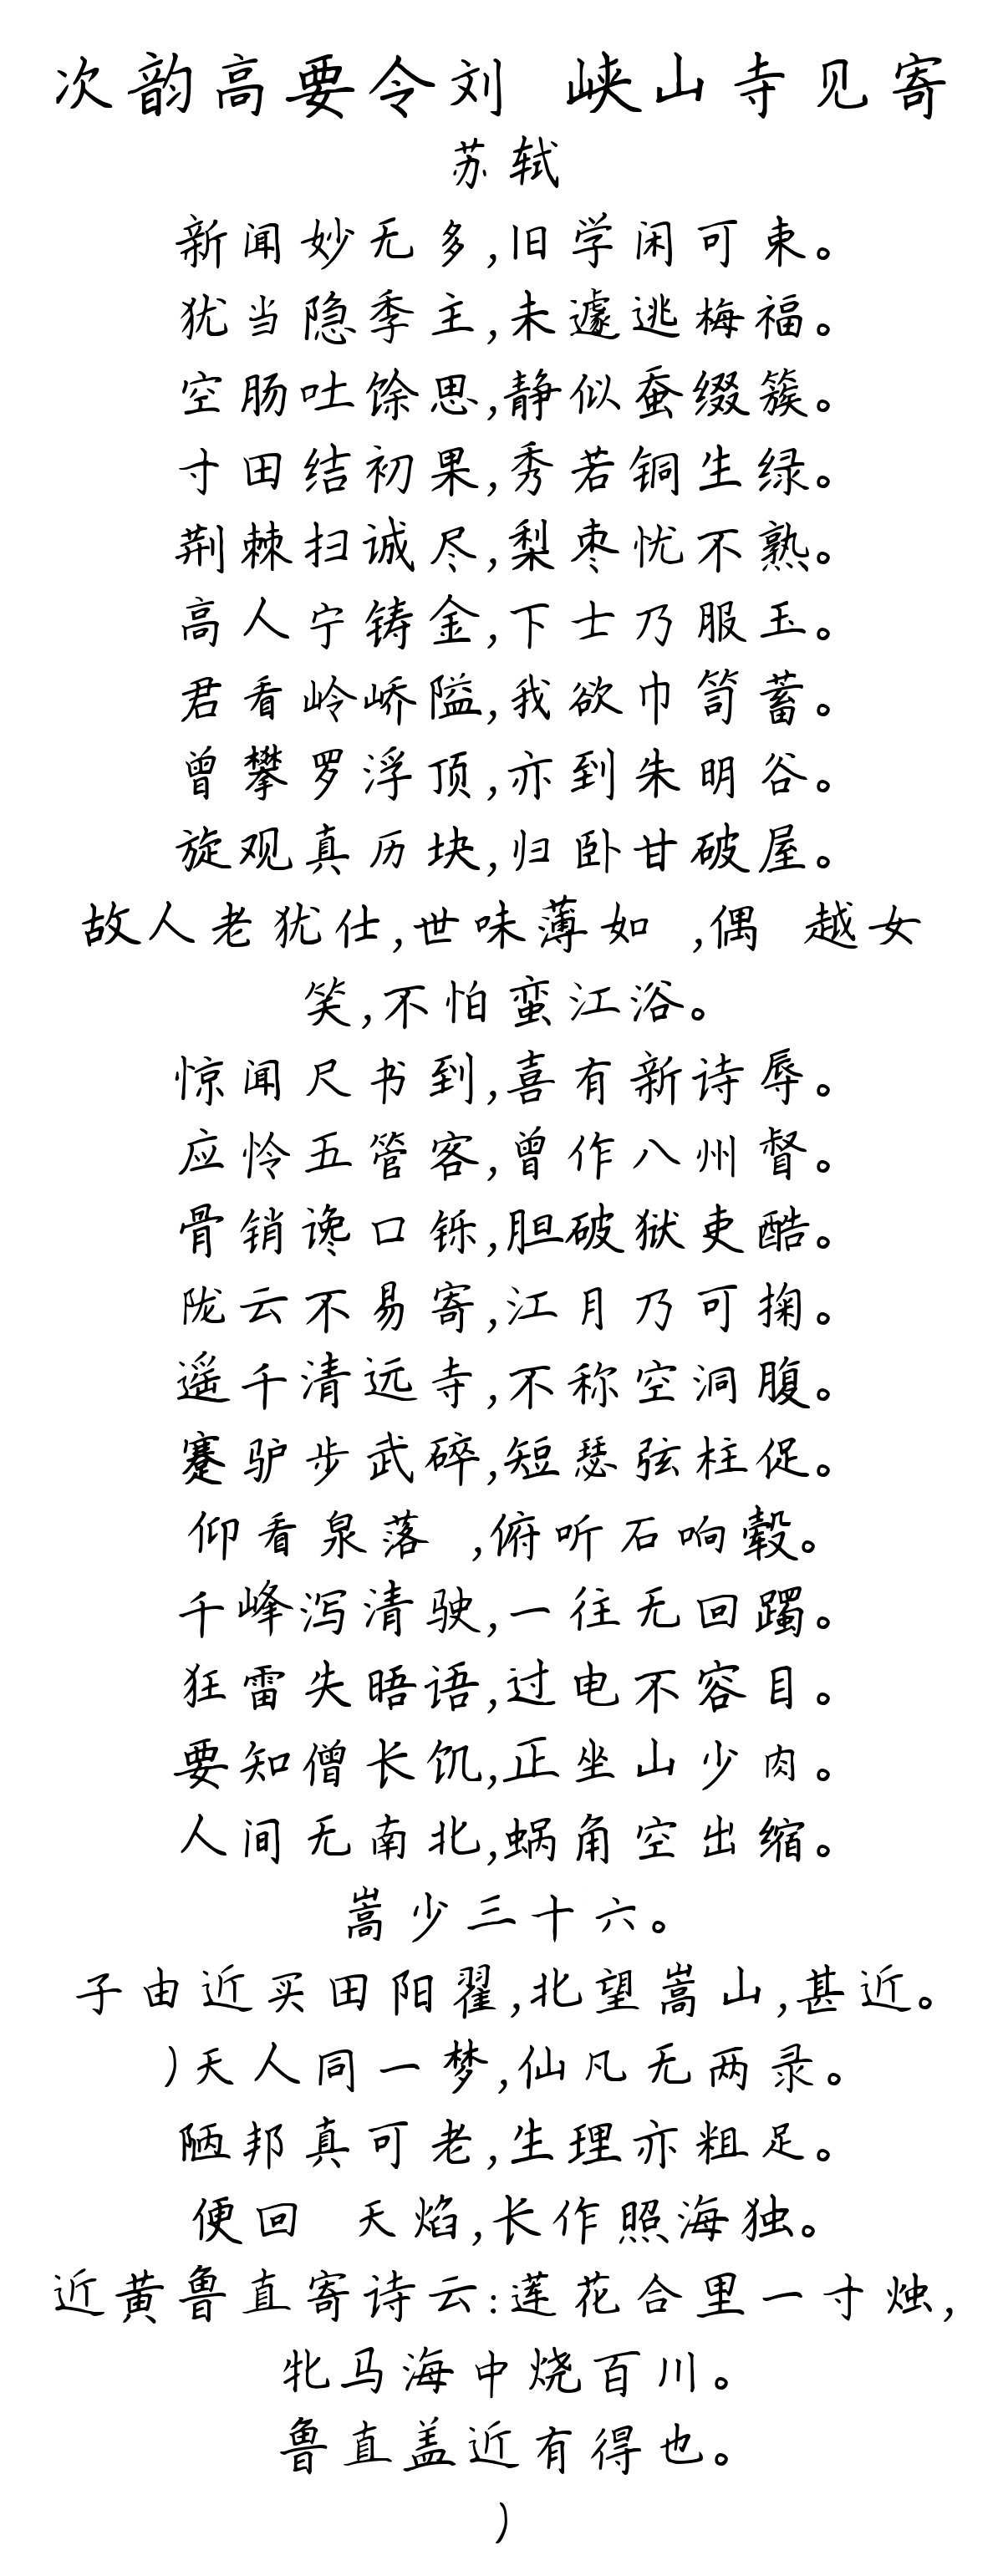 次韵高要令刘 峡山寺见寄
苏轼
新闻妙无多,旧学闲可束。
犹当隐季主,未遽逃梅福。
空肠吐馀思,静似蚕缀簇。
寸田结初果,秀若铜生绿。
荆棘扫诚尽,梨枣忧不熟。
高人宁铸金,下士乃服玉。
君看岭峤隘,我欲巾笥蓄。
曾攀罗浮顶,亦到朱明谷。
旋观真历块,归卧甘破屋。
故人老犹仕,世味薄如 ,偶 越女
笑,不怕蛮江浴。
惊闻尺书到,喜有新诗辱。
应怜五管客,曾作八州督。
骨销谗口铄,胆破狱吏酷。
陇云不易寄,江月乃可掬。
遥千清远寺,不称空洞腹。
蹇驴步武碎,短瑟弦柱促。
仰看泉落 ,俯听石响毂。
千峰泻清驶,一往无回躅。
狂雷失晤语,过电不容目。
要知僧长饥,正坐山少肉。
人间无南北,蜗角空出缩。
嵩少三十六。
子由近买田阳翟,北望嵩山,甚近。
)天人同一梦,仙凡无两录。
陋邦真可老,生理亦粗足。
便回 天焰,长作照海独。
近黄鲁直寄诗云:莲花合里一寸烛,
牝马海中烧百川。
鲁直盖近有得也。
)